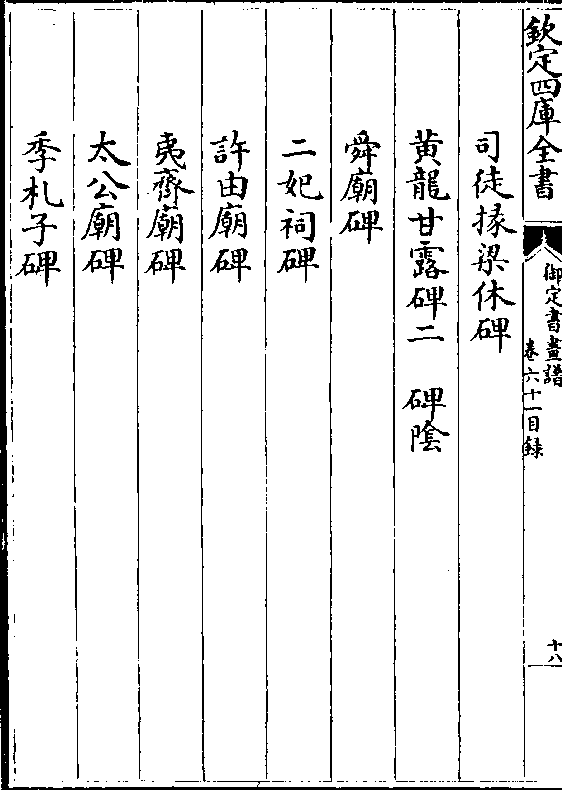 欽定四庫全書
御定書畫譜
卷六十一目録
十八
司徒掾梁休碑
黃龍甘露碑二　碑陰
舜廟碑
二妃祠碑
許由廟碑
夷齊廟碑
太公廟碑
季札子碑